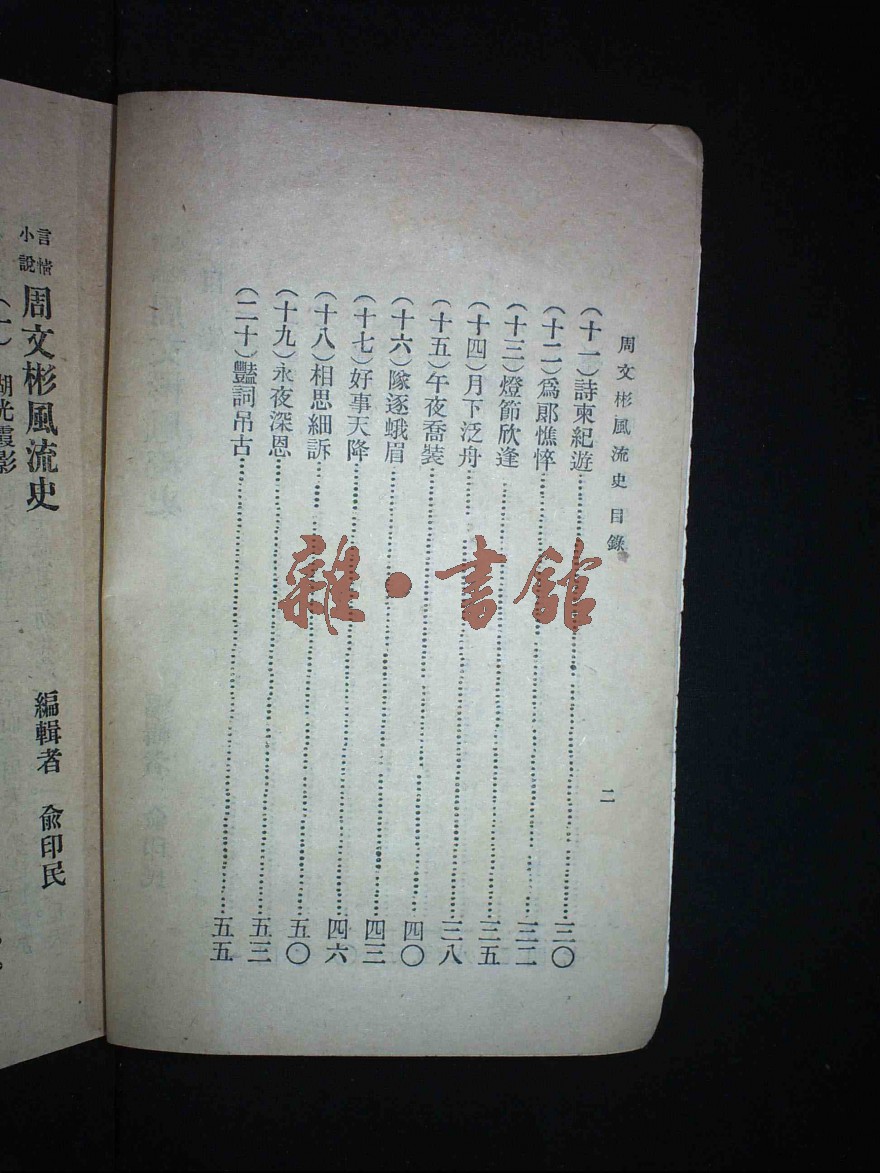 周文彬風流史 目錄
二
（十一）詩柬紀遊……三〇
（十二）爲郎憔悴……三二
（十三）燈節欣逢……三五
（十四）月下泛舟……三八
（十五）午夜喬裝……四〇
（十六）隊逐蛾眉……四三
（十七）好事天降……四六
（十八）相思細訴……五〇
（十九）永夜深恩……五三
（二十）豔詞吊古……五五
雜·書館
言情小說 周文彬風流史
編輯者 俞印民
湖光霞影